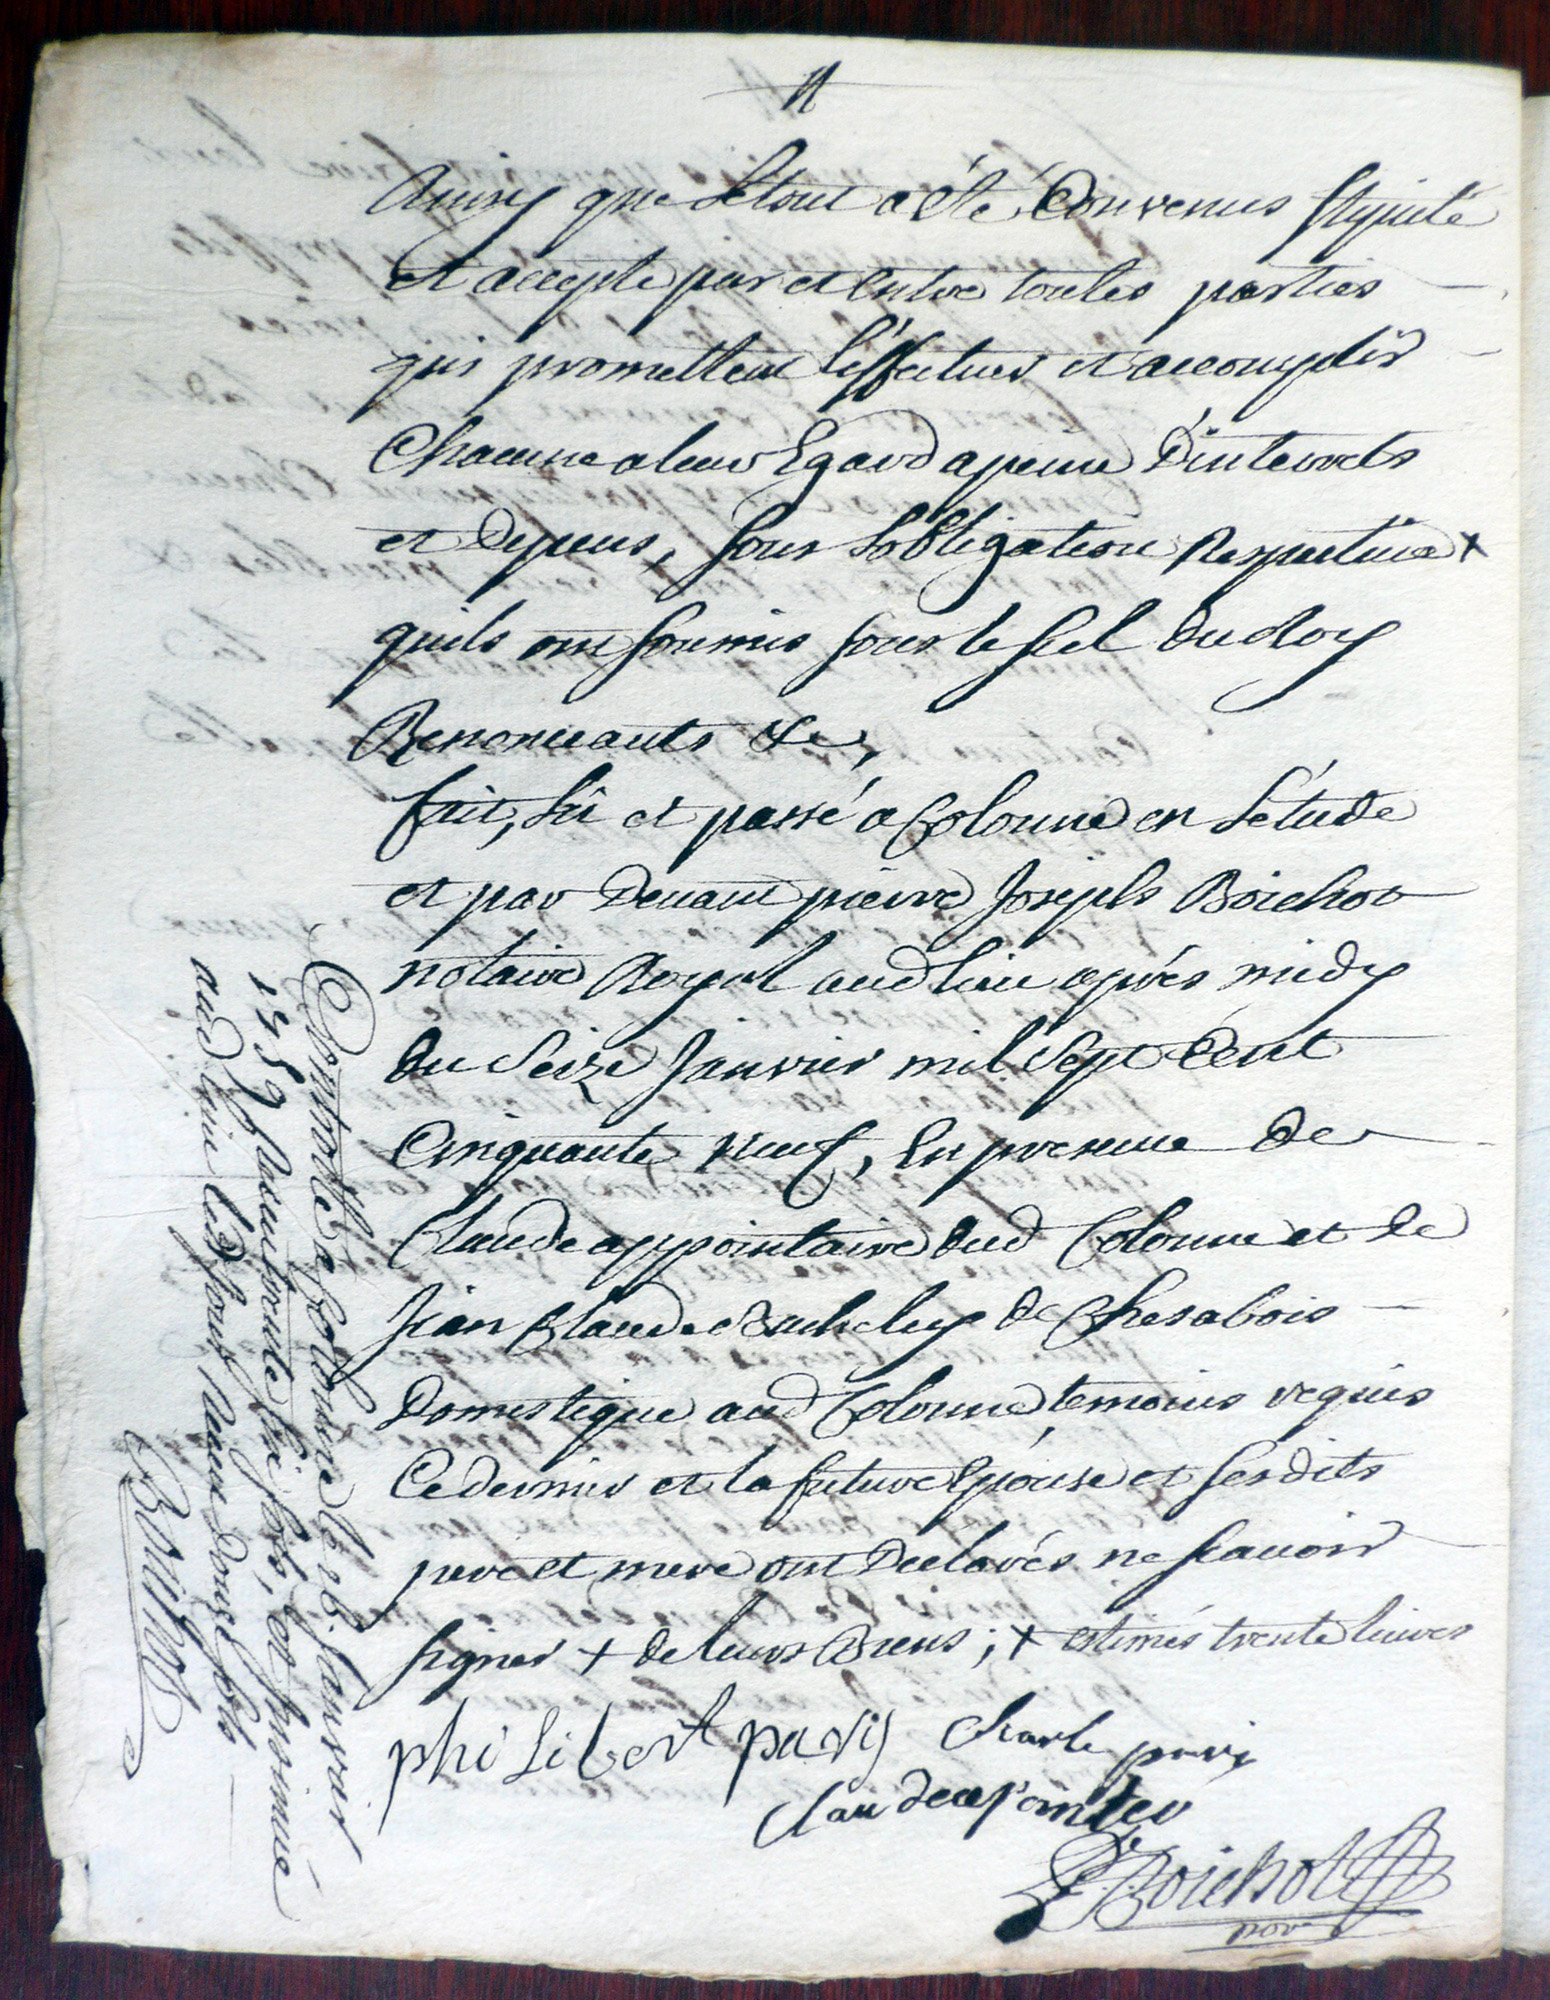 Ainsy que Le tout a été Convenus stipulé
et accepté par et Entre toutes parties
qui promettent L'effectuer et accomplir
Chacune a leur Egard a peine D'interrets
et Depens, sous L'obligation Respective +
quils ont soumis sous le scel Du Roy
Renonceants &c,
fait, Lû et passé a Colonne en L'étude
et par Devant pierre Joseph Boichot
notaire Royal aud lieu après midy
Du Seize Janvier mil Sept Cent
Cinquante Neuf, En presence De
Claude appointaire Dud Colonne et De
Jean Claude de Chesabois
Domestique aud Colonne temoins requis
Ce dernier et la future Epouse et ses dits
pere et mere ont Declarés ne scavoir
signer + de leurs Biens ; + estimés trente livres
phi Libert paris Charle paris
Claude apointer
Boichot
nore
Controllé a Colonne le 26. Janvier
1759 Reçu trente six sols, et insinué
aud lieu led Jour, Reçu Douze sols
Boichot